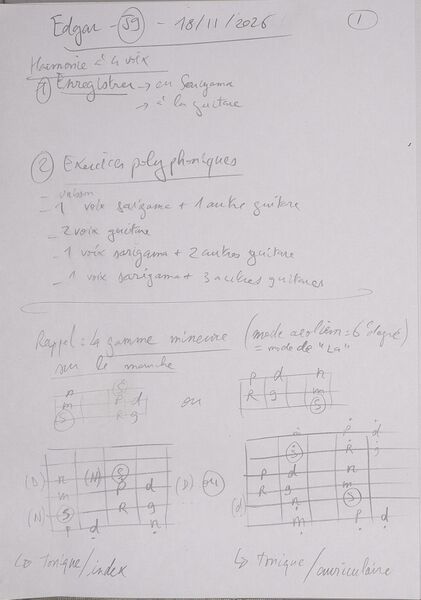 Edgar - 59 - 18/11/2026
1
Harmonie à la voix
1 Enregistrer → en Sarigama
→ à la guitare
2 Exercices polyphoniques
unisson
- 1 voix sarigama + 1 autre guitare
- 2 voix guitare
- 1 voix sarigama + 2 autres guitares
- 1 voix sarigama + 3 autres guitares
Rappel = la gamme mineure (mode aeolien = 6e degré)
sur le manche = mode de "La"
n S
m P d
S R g
ou
P d n
R g m
S
(D) n (N) S
m P d (D)
(N) S R g
P d n
ou
m P d
S R g
P d n
R g m
(d) S
n
m P d
↳ tonique/index
↳ tonique/auriculaire